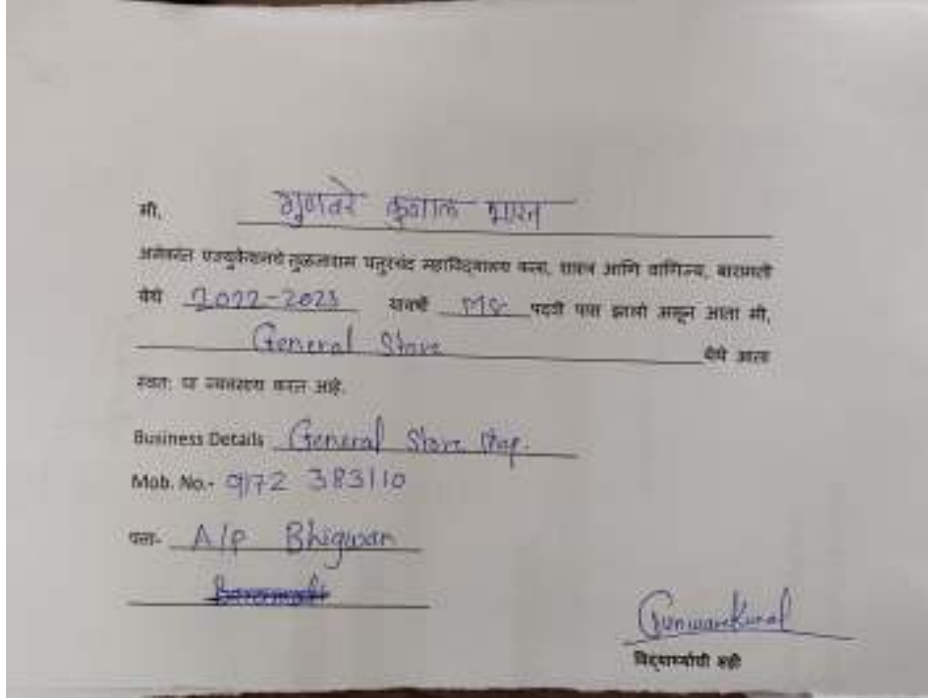 मी, गुणवरे कुणाल भारत
अनेकांत एज्युकेशनचे तुळजाराम चतुरचंद महाविद्यालय कला, शास्त्र आणि वाणिज्य, बारामती
येथे 2022-2023 पदवी पास झालो असून आता मी,
General Store येथे आता
स्वतः चा व्यवसाय करत आहे.
Business Details General Store Shop.
Mob. No.- 9172 383110
पत्ता- A/P Bhigwan
Baramati
GunwareKunal
विद्यार्थ्याची सही